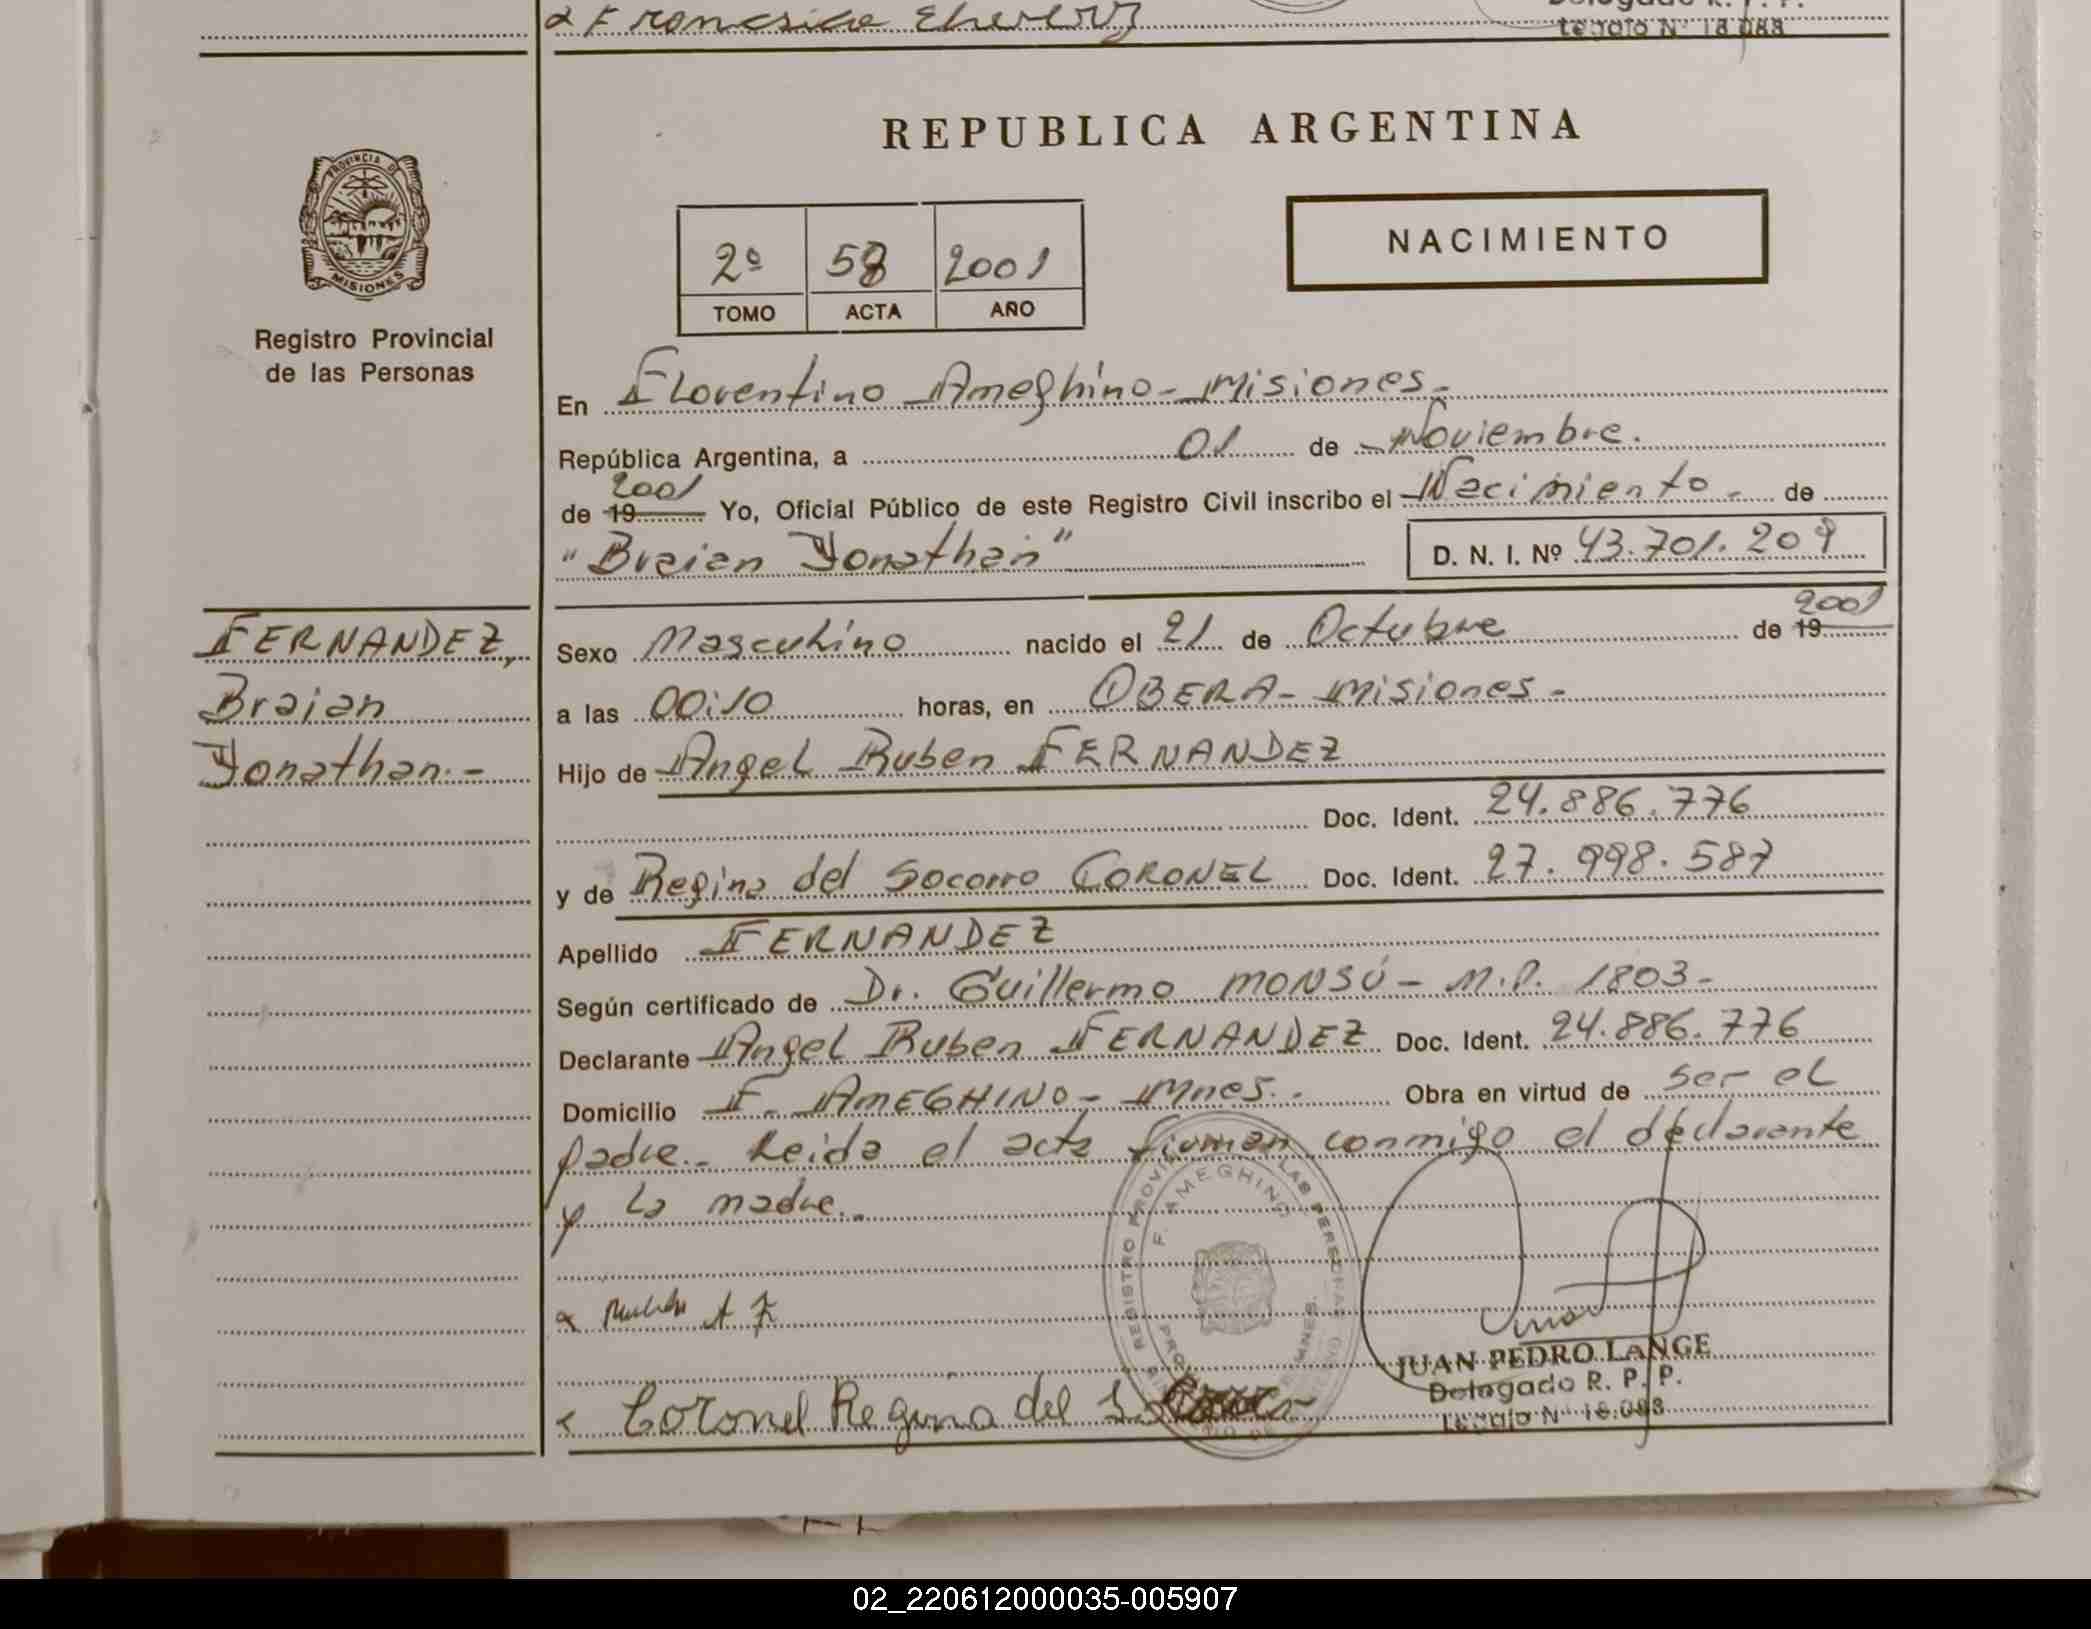 Francisco
Delegado R. P. P.
Legajo Nº 18.088
PROVINCIA DE
MISIONES
Registro Provincial
de las Personas
REPUBLICA ARGENTINA
NACIMIENTO
2º 58 2001
TOMO ACTA AÑO
En Florentino Ameghino - Misiones.
República Argentina, a 01 de Noviembre.
de 19 2001 Yo, Oficial Público de este Registro Civil inscribo el Nacimiento. de
"Braian Yonathan" D. N. I. Nº 43.701.209
FERNANDEZ,
Braian
Yonathan.-
Sexo Masculino nacido el 21 de Octubre de 19 2001
a las 00:10 horas, en OBERA - Misiones -
Hijo de Angel Ruben FERNANDEZ
Doc. Ident. 24.886.776
y de Regina del Socorro CORONEL Doc. Ident. 27.998.587
Apellido FERNANDEZ
Según certificado de Dr. Guillermo MONSÚ - M.P. 1803 -
Declarante Angel Ruben FERNANDEZ Doc. Ident. 24.886.776
Domicilio F. AMEGHINO - Mnes. - Obra en virtud de ser el
padre.- Leida el acta firman conmigo el declarante
y la madre.-
REGISTRO PROVINCIAL DE LAS PERSONAS
F. AMEGHINO
MNES.
A F
JUAN PEDRO LANGE
Delegado R. P. P.
Legajo Nº 18.088
Coronel Regina del S
02_220612000035-005907